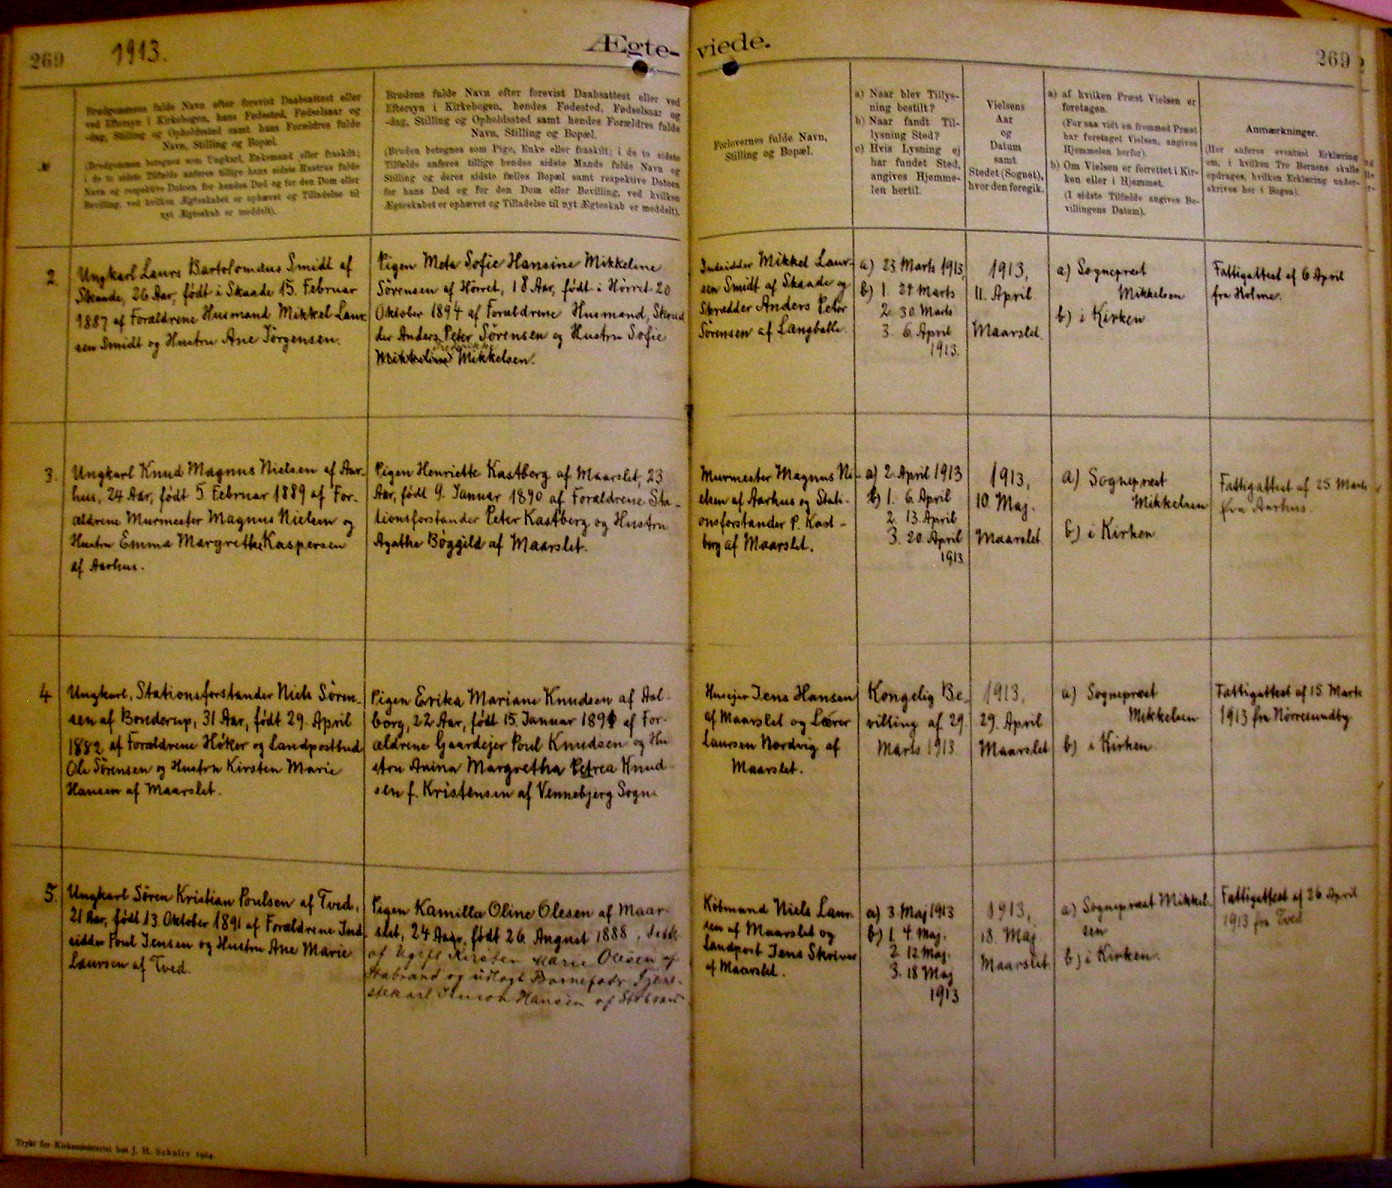 269 1913. Ægte-
viede. 269
№
Brudgommens fulde Navn efter forevist Daabsattest eller
ved Eftersyn i Kirkebogen, hans Fødested, Fødselsaar og
-dag, Stilling og Opholdssted samt hans Forældres fulde
Navn, Stilling og Bopæl.
(Brudgommen betegnes som Ungkarl, Enkemand eller fraskilt;
i de to sidste Tilfælde anføres tillige hans sidste Hustrus fulde
Navn og respektive Datoen for hendes Død og for den Dom eller
Bevilling, ved hvilken Ægteskabet er ophævet og Tilladelse til
nyt Ægteskab er meddelt).
Brudens fulde Navn efter forevist Daabsattest eller ved
Eftersyn i Kirkebogen, hendes Fødested, Fødselsaar og
-dag, Stilling og Opholdssted samt hendes Forældres fulde
Navn, Stilling og Bopæl.
(Bruden betegnes som Pige, Enke eller fraskilt; i de to sidste
Tilfælde anføres tillige hendes sidste Mands fulde Navn og
Stilling og deres sidste fælles Bopæl samt respektive Datoen
for hans Død og for den Dom eller Bevilling, ved hvilken
Ægteskabet er ophævet og Tilladelse til nyt Ægteskab er meddelt).
Forlovernes fulde Navn,
Stilling og Bopæl.
a) Naar blev Tillys-
ning bestilt?
b) Naar fandt Til-
lysning Sted?
c) Hvis Lysning ej
har fundet Sted,
angives Hjemme-
len hertil.
Vielsens
Aar
og
Datum
samt
Stedet (Sognet),
hvor den foregik.
a) af hvilken Præst Vielsen er
foretagen.
(For saa vidt en fremmed Præst
har foretaget Vielsen, angives
Hjemmelen herfor).
b) Om Vielsen er forrettet i Kir-
ken eller i Hjemmet.
(I sidste Tilfælde angives Be-
villingens Datum).
Anmærkninger.
(Her anføres eventuel Erklæring
om, i hvilken Tro Børnene skulle
opdrages, hvilken Erklæring under-
skrives her i Bogen).
2.
Ungkarl Laurs Bartolomæus Smidt af
Skaade, 26 Aar, født i Skaade 15. Februar
1887 af Forældrene Husmand Mikkel Laur-
sen Smidt og Hustru Ane Jørgensen.
Pigen Meta Sofie Hansine Mikkeline
Sørensen af Hørret, 18 Aar, født i Hørret 20
Oktober 1894 af Forældrene Husmand, Skræd
der Anders Peter Sørensen og Hustru Sofie
Mikkeline Mikkelsen.
Indsidder Mikkel Laur-
sen Smidt af Skaade og
Skrædder Anders Peter
Sørensen af Langballe.
a) 23 Marts 1913,
b) 1 24 Marts
2. 30 Marts
3. 6. April
1913.
1913,
11. April
Maarslet.
a) Sognepræst
Mikkelsen
b) i Kirken
Fattigattest af 6 April
fra Holme.
3.
Ungkarl Knud Magnus Nielsen af Aar-
hus, 24 Aar, født 5. Februar 1889 af For-
ældrene Murmester Magnus Nielsen og
Hustru Emma Margrethe Kaspersen
af Aarhus.
Pigen Henriette Kastberg af Maarslet, 23
Aar, født 9. Januar 1890 af Forældrene Sta-
tionsforstander Peter Kastberg og Hustru
Agathe Bøggild af Maarslet.
Murmester Magnus Ni-
elsen af Aarhus og Stati-
onsforstander P. Kast-
berg af Maarslet.
a) 2. April 1913
b) 1. 6. April
2. 13. April
3. 20. April
1913
1913,
10. Maj.
Maarslet.
a) Sognepræst
Mikkelsen
b) i Kirken
Fattigattest af 25. Marts
fra Aarhus.
4
Ungkarl, Stationsforstander Niels Søren-
sen af Bonderup, 31 Aar, født 29. April
1882 af Forældrene Høker og Landpostbud
Ole Sørensen og Hustru Kirsten Marie
Hansen af Maarslet.
Pigen Erika Mariane Knudsen af Aal-
borg, 22 Aar, født 15. Januar 1891 af For-
ældrene Gaardejer Poul Knudsen og Hu
stru Anina Margretha Petrea Knud-
sen f. Kristensen af Vennebjerg Sogn.
Husejer Jens Hansen
af Maarslet og Lærer
Laursen Nordvig af
Maarslet.
Kongelig Be-
villing af 29.
Marts 1913
1913,
29. April
Maarslet
a) Sognepræst
Mikkelsen
b) i Kirken
Fattigattest af 15. Marts
1913 fra Nørresundby.
5.
Ungkarl Søren Kristian Poulsen af Tved,
21 Aar, født 13. Oktober 1891 af Forældrene Ind-
sidder Poul Jensen og Hustru Ane Marie
Laursen af Tved.
Pigen Kamilla Oline Olesen af Maar-
slet, 24 Aar, født 26. August 1888,
af Ugift Kirsten Marie Olesen af
Stabrand og udlagt Barnefader Tjene-
stekarl Hansen af
Købmand Niels Laur-
sen af Maarslet og
Landpost Jens Skriver
af Maarslet.
a) 3. Maj 1913
b) 1. 4. Maj.
2. 12 Maj.
3. 18 Maj
1913
1913,
18. Maj
Maarslet
a) Sognepræst Mikkel-
sen
b) i Kirken.
Fattigattest af 26 April
1913 fra Tved
Trykt for Kirkeministeriet hos J. H. Schultz 1904